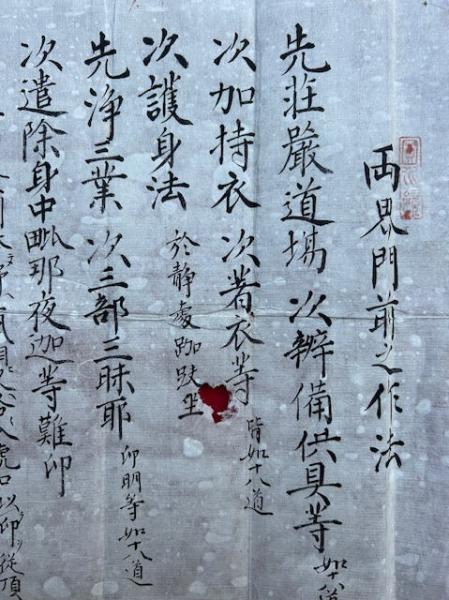 両界門前之作法
先莊嚴道場 次辦備供具等 如十八道
次加持衣 次著衣等 皆如十八道
次護身法 於静處跏趺坐
先淨三業 次三部三昧耶 印明等如十八道
次遣除身中毗那夜迦等難印
虎口以印從頂